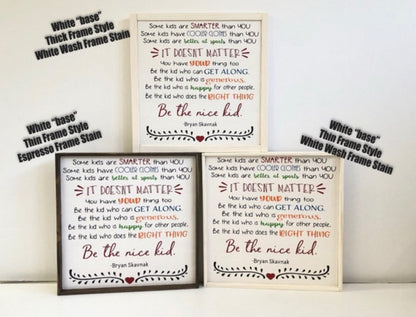 White "base"
Thick Frame Style
White Wash Frame Stain
Some kids are SMARTER than YOU
Some kids have COOLER CLOTHES than YOU
Some kids are better at sports than YOU
IT DOESN'T MATTER
You have YOUR thing too
Be the kid who can GET ALONG.
Be the kid who is generous.
Be the kid who is happy for other people.
Be the kid who does the RIGHT THING
Be the nice kid.
-Bryan Skavnak
White "base"
Thin Frame Style
Espresso Frame Stain
Some kids are SMARTER than YOU
Some kids have COOLER CLOTHES than YOU
Some kids are better at sports than YOU
IT DOESN'T MATTER
You have YOUR thing too
Be the kid who can GET ALONG.
Be the kid who is generous.
Be the kid who is happy for other people.
Be the kid who does the RIGHT THING
Be the nice kid.
-Bryan Skavnak
White "base"
Thin Frame Style
White Wash Frame Stain
Some kids are SMARTER than YOU
Some kids have COOLER CLOTHES than YOU
Some kids are better at sports than YOU
IT DOESN'T MATTER
You have YOUR thing too
Be the kid who can GET ALONG.
Be the kid who is generous.
Be the kid who is happy for other people.
Be the kid who does the RIGHT THING
Be the nice kid.
-Bryan Skavnak